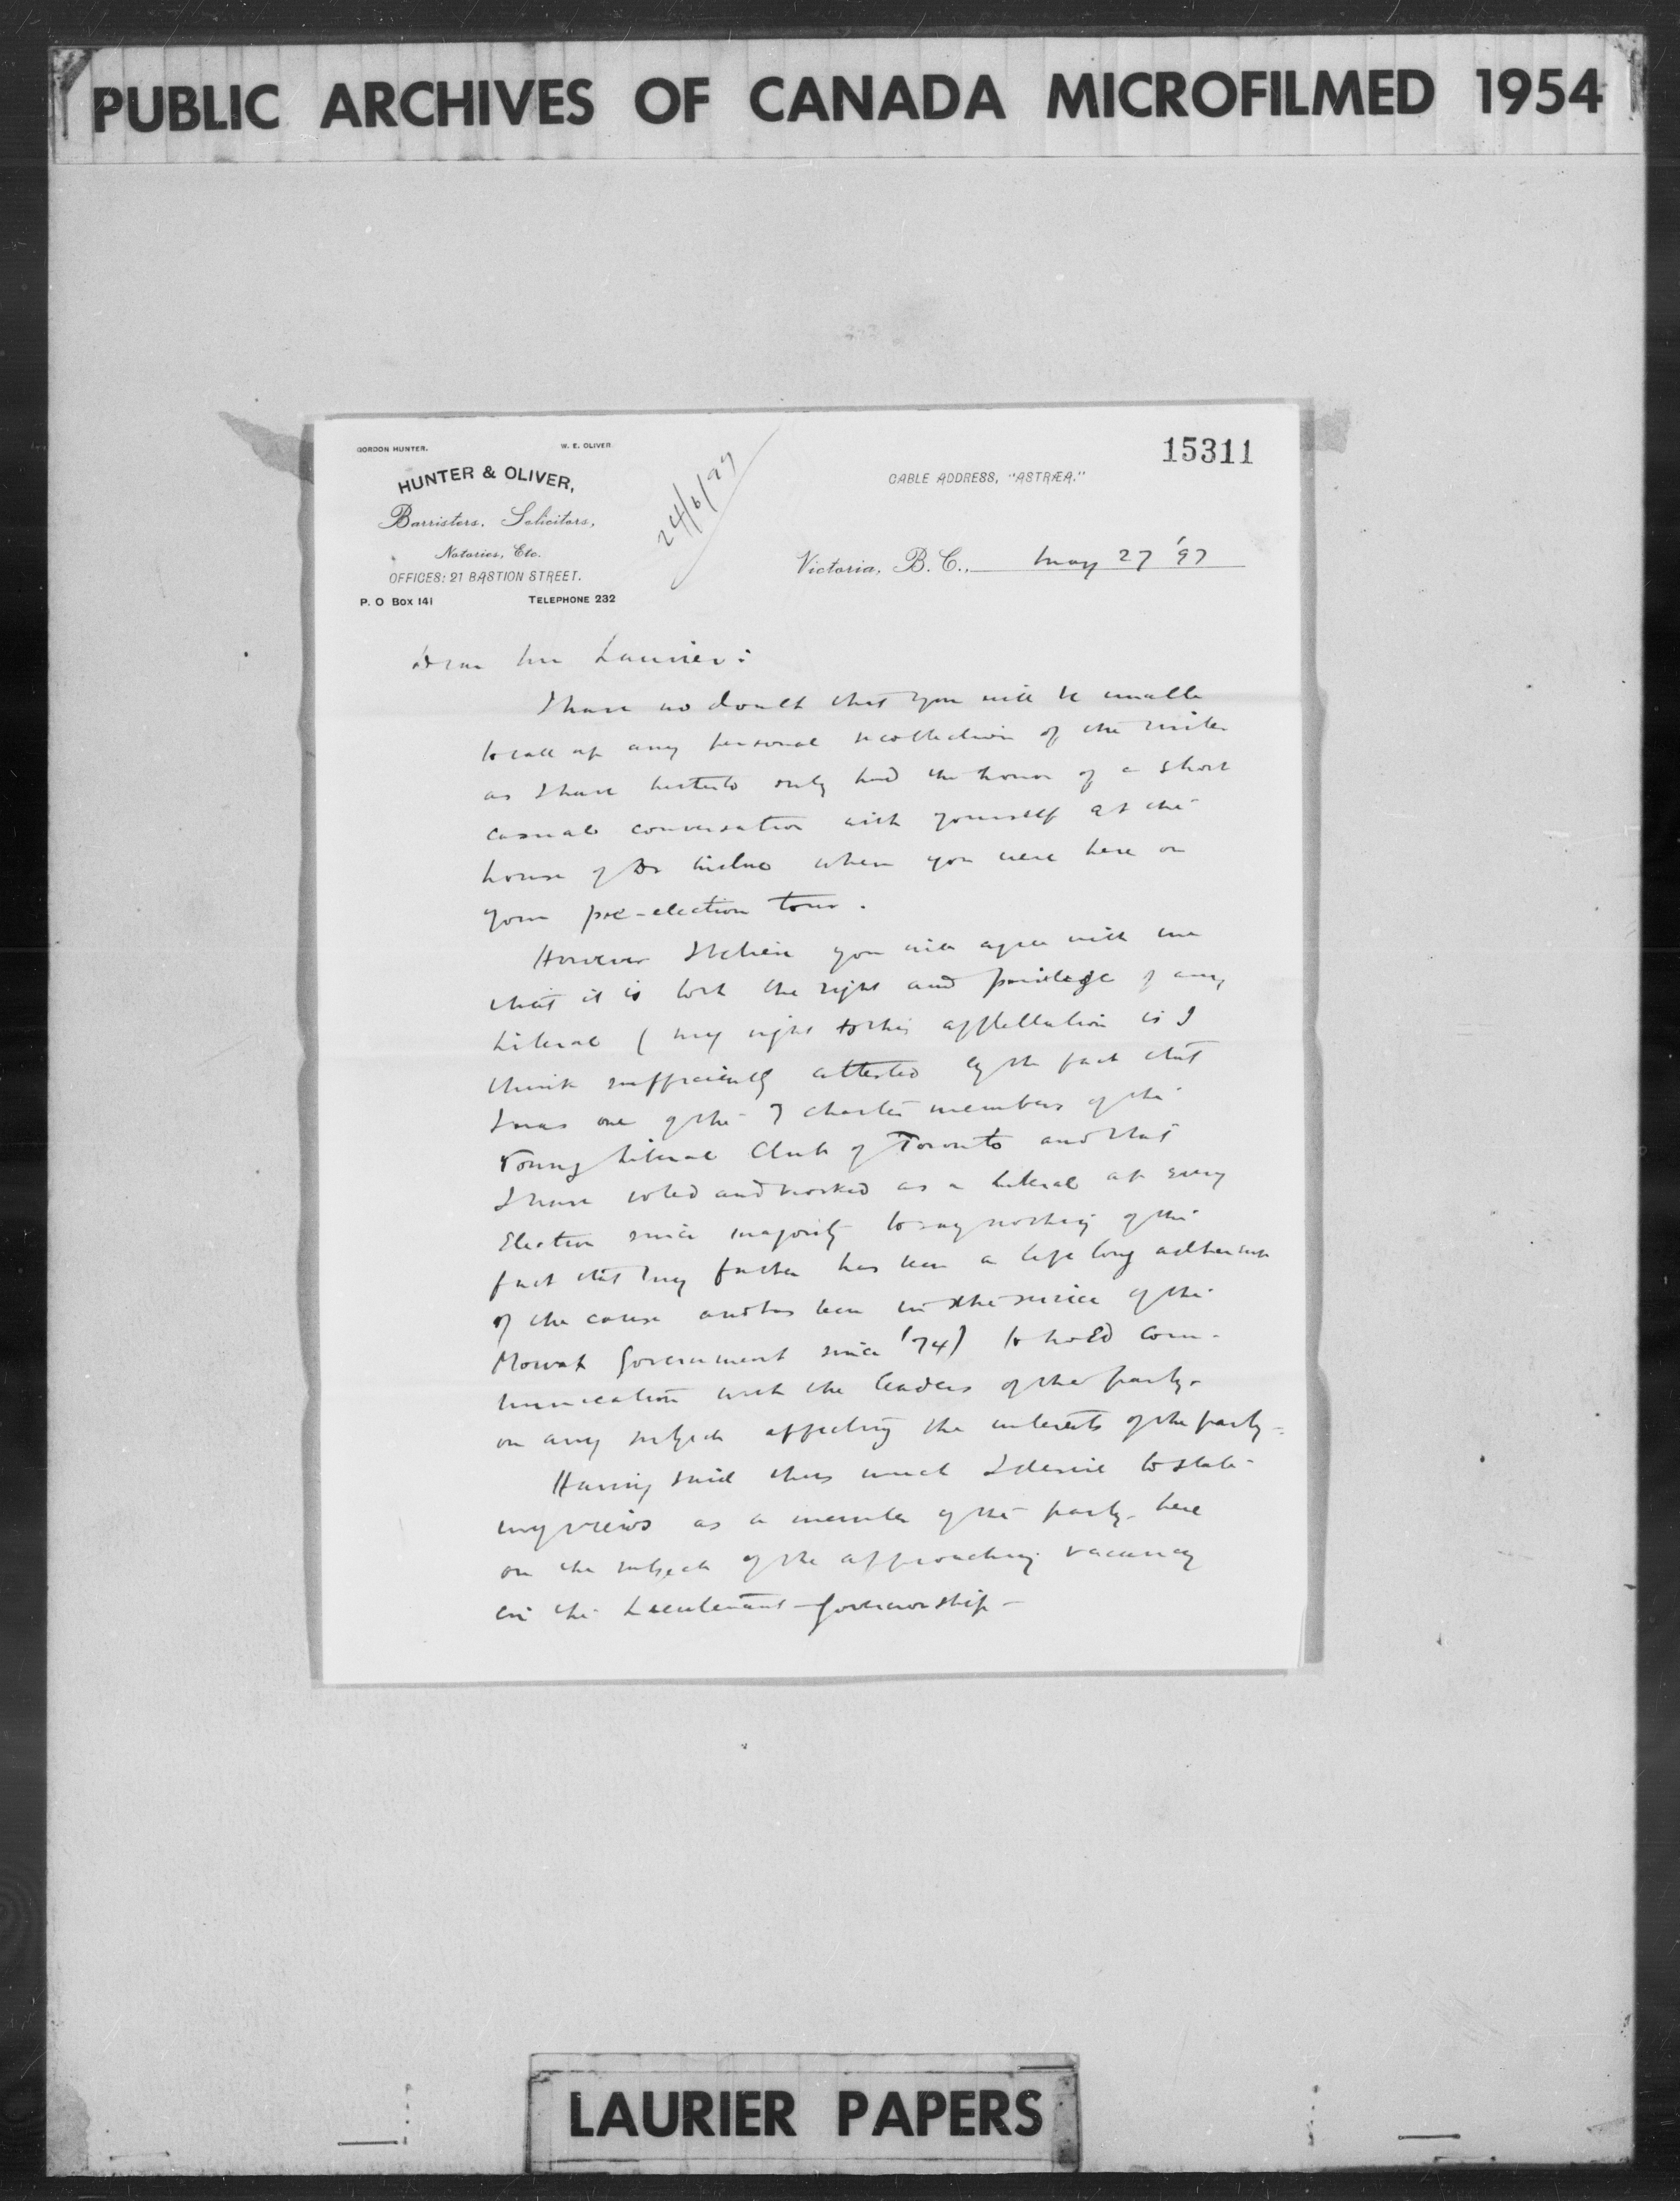 PUBLIC ARCHIVES OF CANADA MICROFILMED 1954
GORDON HUNTER. W. E. OLIVER
HUNTER & OLIVER,
Barristers, Solicitors,
Notaries, Etc.
OFFICES: 21 BASTION STREET.
P. O Box 141 TELEPHONE 232
24/6/97
15311
CABLE ADDRESS, "ASTRÆA."
Victoria, B.C., May 27 '97
Dear Mr Laurier:
I have no doubt that you will be unable
to call up any personal recollection of the writer
as I have hitherto only had the honor of a short
casual conversation with yourself at the
house of Dr Milne when you were here on
your pre-election tour.
However I believe you will agree with me
that it is both the right and privilege of any
Liberal (my right to this appellation is I
think sufficiently attested by the fact that
I was one of the 7 charter members of the
Young Liberal Club of Toronto and that
I have voted and worked as a Liberal at every
Election since majority to say nothing of the
fact that my father has been a life long adherent
of the cause and has been in the service of the
Mowat Government since '74) to hold com-
munication with the leaders of the party
on any subject affecting the interests of the party-
Having said thus much I desire to state
my views as a member of the party here
on the subject of the approaching vacancy
in the Lieutenant-Governorship -
LAURIER PAPERS